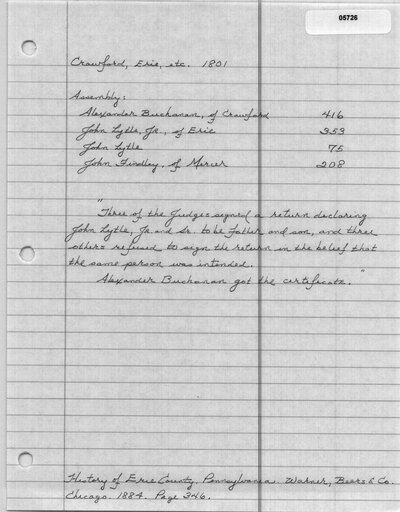 05726
Crawford, Erie, etc. 1801
Assembly:
Alexander Buchanan, of Crawford 416
John Lytle, Jr., of Erie 353
John Lytle 75
John Findley, of Mercer 208
"Three of the judges signed a return declaring
John Lytle, Jr. and Sr. to be father and son, and three
others refused to sign the return in the belief that
the same person was intended.
Alexander Buchanan got the certificate."
History of Erie County, Pennsylvania. Warner, Beers & Co.
Chicago. 1884. Page 346.